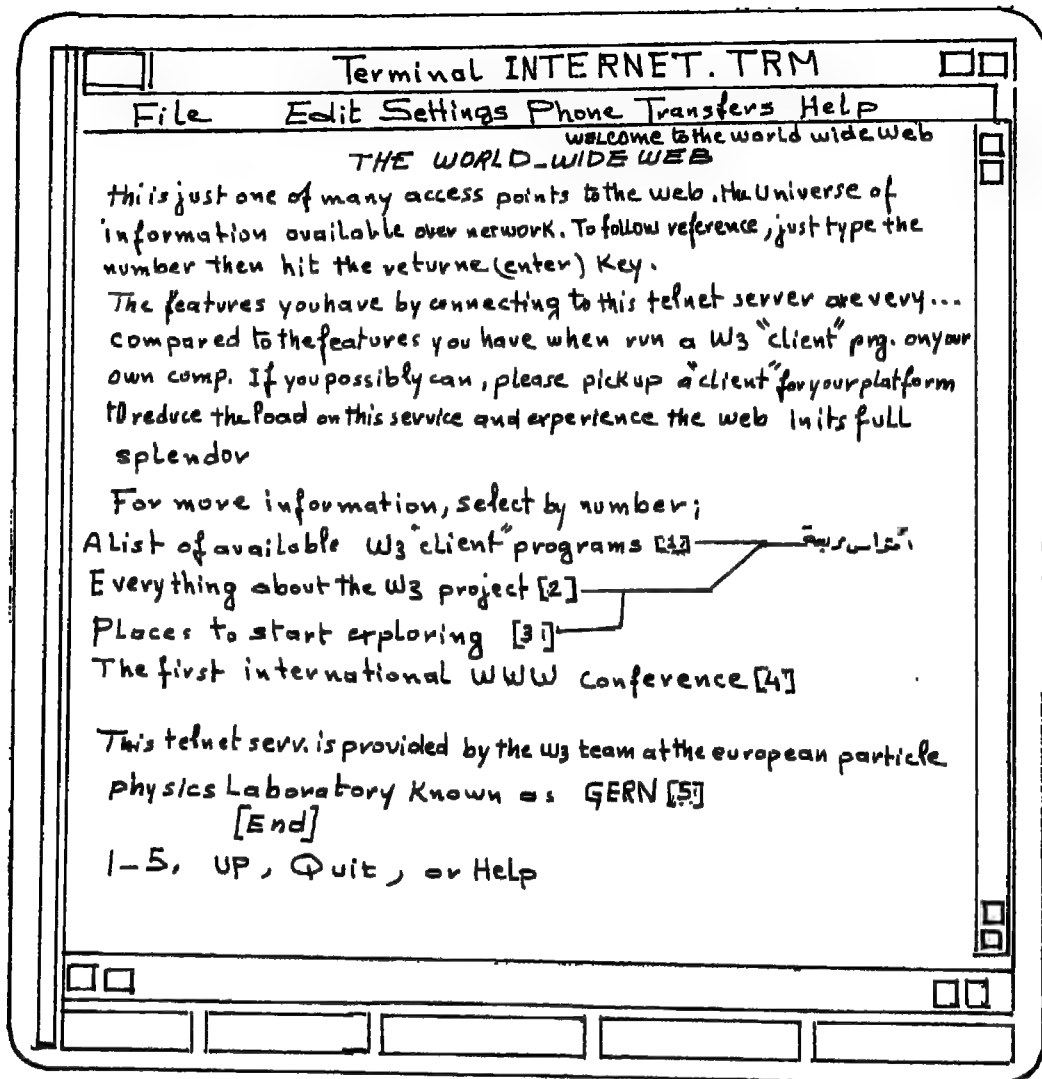 Terminal INTERNET.TRM
File Edit Settings Phone Transfers Help
welcome to the world wide web
THE WORLD_WIDE WEB
thi is just one of many access points to the web. the Universe of
information available over network. To follow reference, just type the
number then hit the returne (enter) Key.
The features you have by connecting to this telnet server are very...
compared to the features you have when run a W3 "client" prg. on your
own comp. If you possibly can, please pick up a "client" for your platform
to reduce the load on this service and experience the web in its full
splendor
For more information, select by number;
A List of available W3 "client" programs [1]
Every thing about the W3 project [2]
Places to start exploring [3]
The first international WWW Conference [4]
This telnet serv. is provided by the W3 team at the european particle
physics Laboratory Known as GERN [5]
[End]
1-5, UP, Quit, or Help